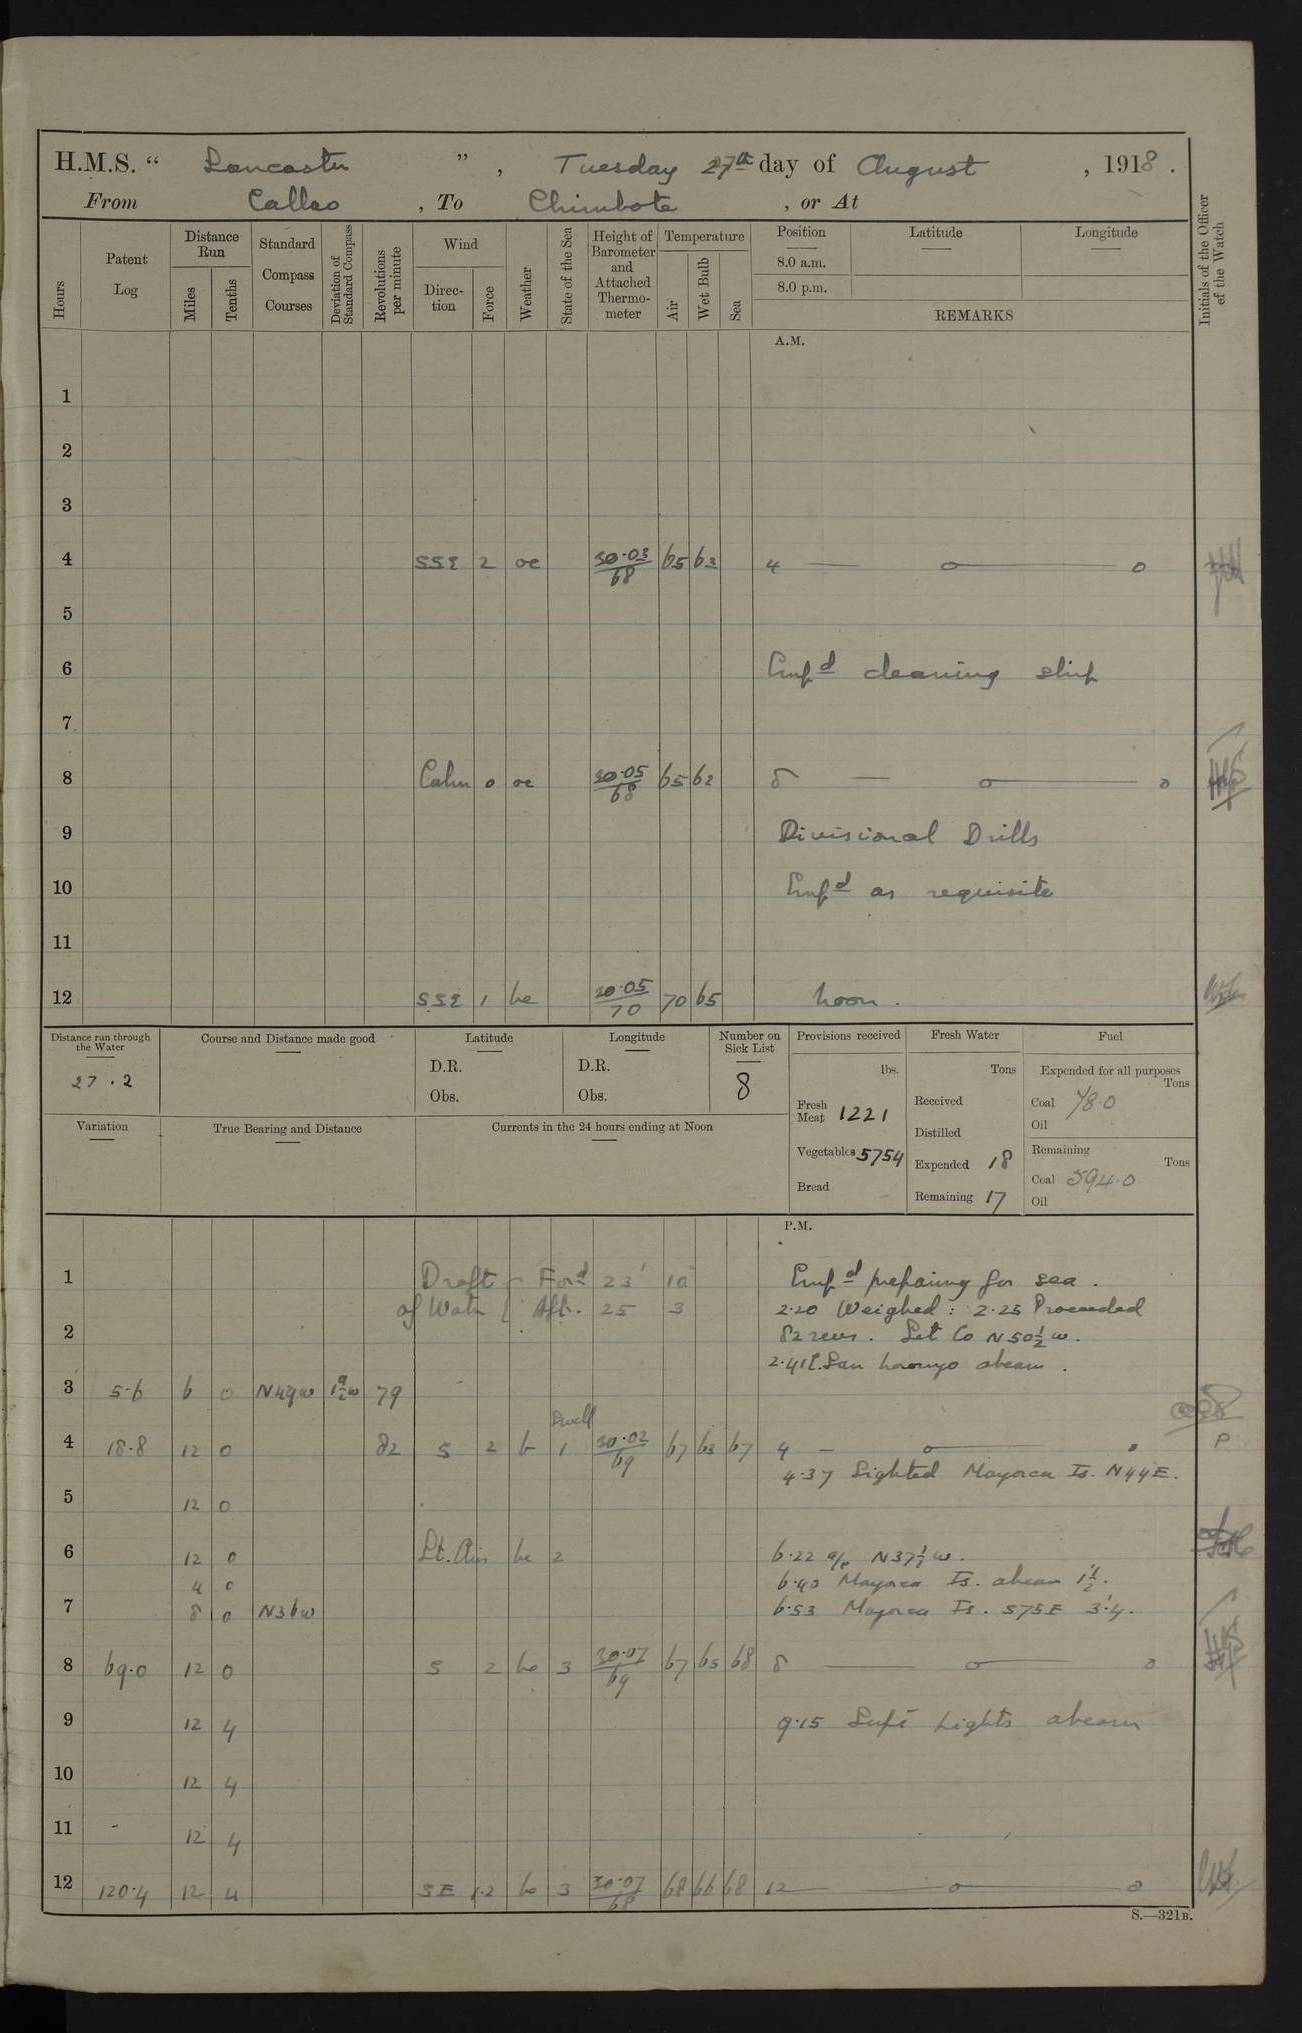 H.M.S. “ Lancaster ” , Tuesday 27th day of August , 1918 .
From Callao , To Chimbote , or At
Hours
Patent Log
Distance Run
Miles
Tenths
Standard Compass Courses
Deviation of Standard Compass
Revolutions per minute
Wind
Direction
Force
Weather
State of the Sea
Height of Barometer and Attached Thermometer
Temperature
Air
Wet Bulb
Sea
Position
8.0 a.m.
8.0 p.m.
Latitude
Longitude
REMARKS
Initials of the Officer of the Watch
A.M.
1
2
3
4 SSE 2 oc 30.03/68 65 63 4
5
6 Empd cleaning ship
7
8 Calm 0 oc 30.05/68 65 62 8
9 Divisional Drills
10 Empd as requisite
11
12 SSE 1 bc 30.05/70 70 65 noon.
Distance run through the Water
27.2
Course and Distance made good
Latitude
D.R.
Obs.
Longitude
D.R.
Obs.
Number on Sick List
8
Provisions received
lbs.
Fresh Meat 1221
Vegetables 5754
Bread
Fresh Water
Tons
Received
Distilled
Expended 18
Remaining 17
Fuel
Expended for all purposes
Tons
Coal 78.0
Oil
Remaining
Tons
Coal 594.0
Oil
Variation
True Bearing and Distance
Currents in the 24 hours ending at Noon
P.M.
1 Draft { Ford 23' 10" Empd preparing for sea.
of Water { Aft. 25 3 2.20 Weighed: 2.25 Proceeded
2 82 revs. Set Co N50½W.
2.41½ San Lorenzo abeam.
3 5.6 6 0 N49W 79
Swell
4 18.8 12 0 82 S 2 b 1 30.02/69 67 63 67 4
4.37 Sighted Mazorca Is. N44E.
5 12 0
6 12 0 Lt. Air bc 2 6.22 a/c N37½W.
4 0 6.40 Mazorca Is. abeam 1½'.
7 8 0 N36W 6.53 Mazorca Is. S75E 3'.4.
8 69.0 12 0 S 2 bc 3 30.07/69 67 65 68 8
9 12 4 9.15 Supé Lights abeam
10 12 4
11 12 4
12 120.4 12 4 SE 1.2 bc 3 30.07/68 68 66 68 12
S.—321B.